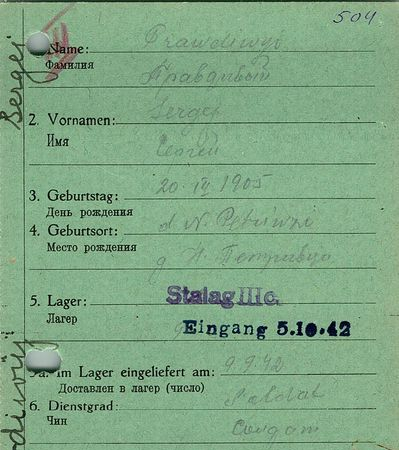 504
1. Name: Prawdiwyj
Фамилия Правдивый
2. Vornamen: Sergej
Имя Сергей
3. Geburtstag: 20. IV 1905
День рождения
4. Geburtsort: d. N.
Место рождения д. Н.
5. Lager: Stalag IIIc.
Лагер
Eingang 5.10.42
5a. Im Lager eingeliefert am: 9.9.42
Доставлен в лагер (число)
6. Dienstgrad: Soldat
Чин Солдат
Sergej
diwyj